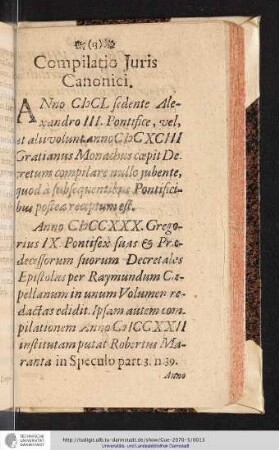 (9)
Compilatio Juris
Canonici.
ANno CIƆCL sedente Ale-
xandro III. Pontifice, vel,
et alii volunt anno CIƆCXCIII
Gratianus Monachus cœpit De-
cretum compilare nullo jubente,
quod à subsequentibus Pontifici-
bus postea receptum est.
Anno CIƆCCXXX. Grego-
rius IX. Pontifex suas & Præ-
decessorum suorum Decretales
Epistolas per Raymundum Ca-
pellanum in unum Volumen re-
dactas edidit. Ipsam autem com-
pilationem Anno CIƆCCXXII
institutam putat Robertus Ma-
ranta in Speculo part. 3. n. 39.
Anno
http://tudigit.ulb.tu-darmstadt.de/show/Gue-2070-5/0013
Universitäts- und Landesbibliothek Darmstadt